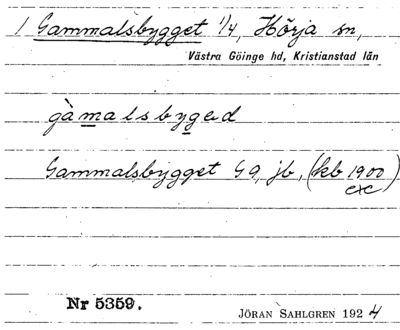 1 Gammalsbygget 1/4, Hörja sn,
Västra Göinge hd, Kristianstad län
gàmalsbygəd
Gammalsbygget G9, jb, (kb 1900)
exc
Nr 5359.
JÖRAN SAHLGREN 1924